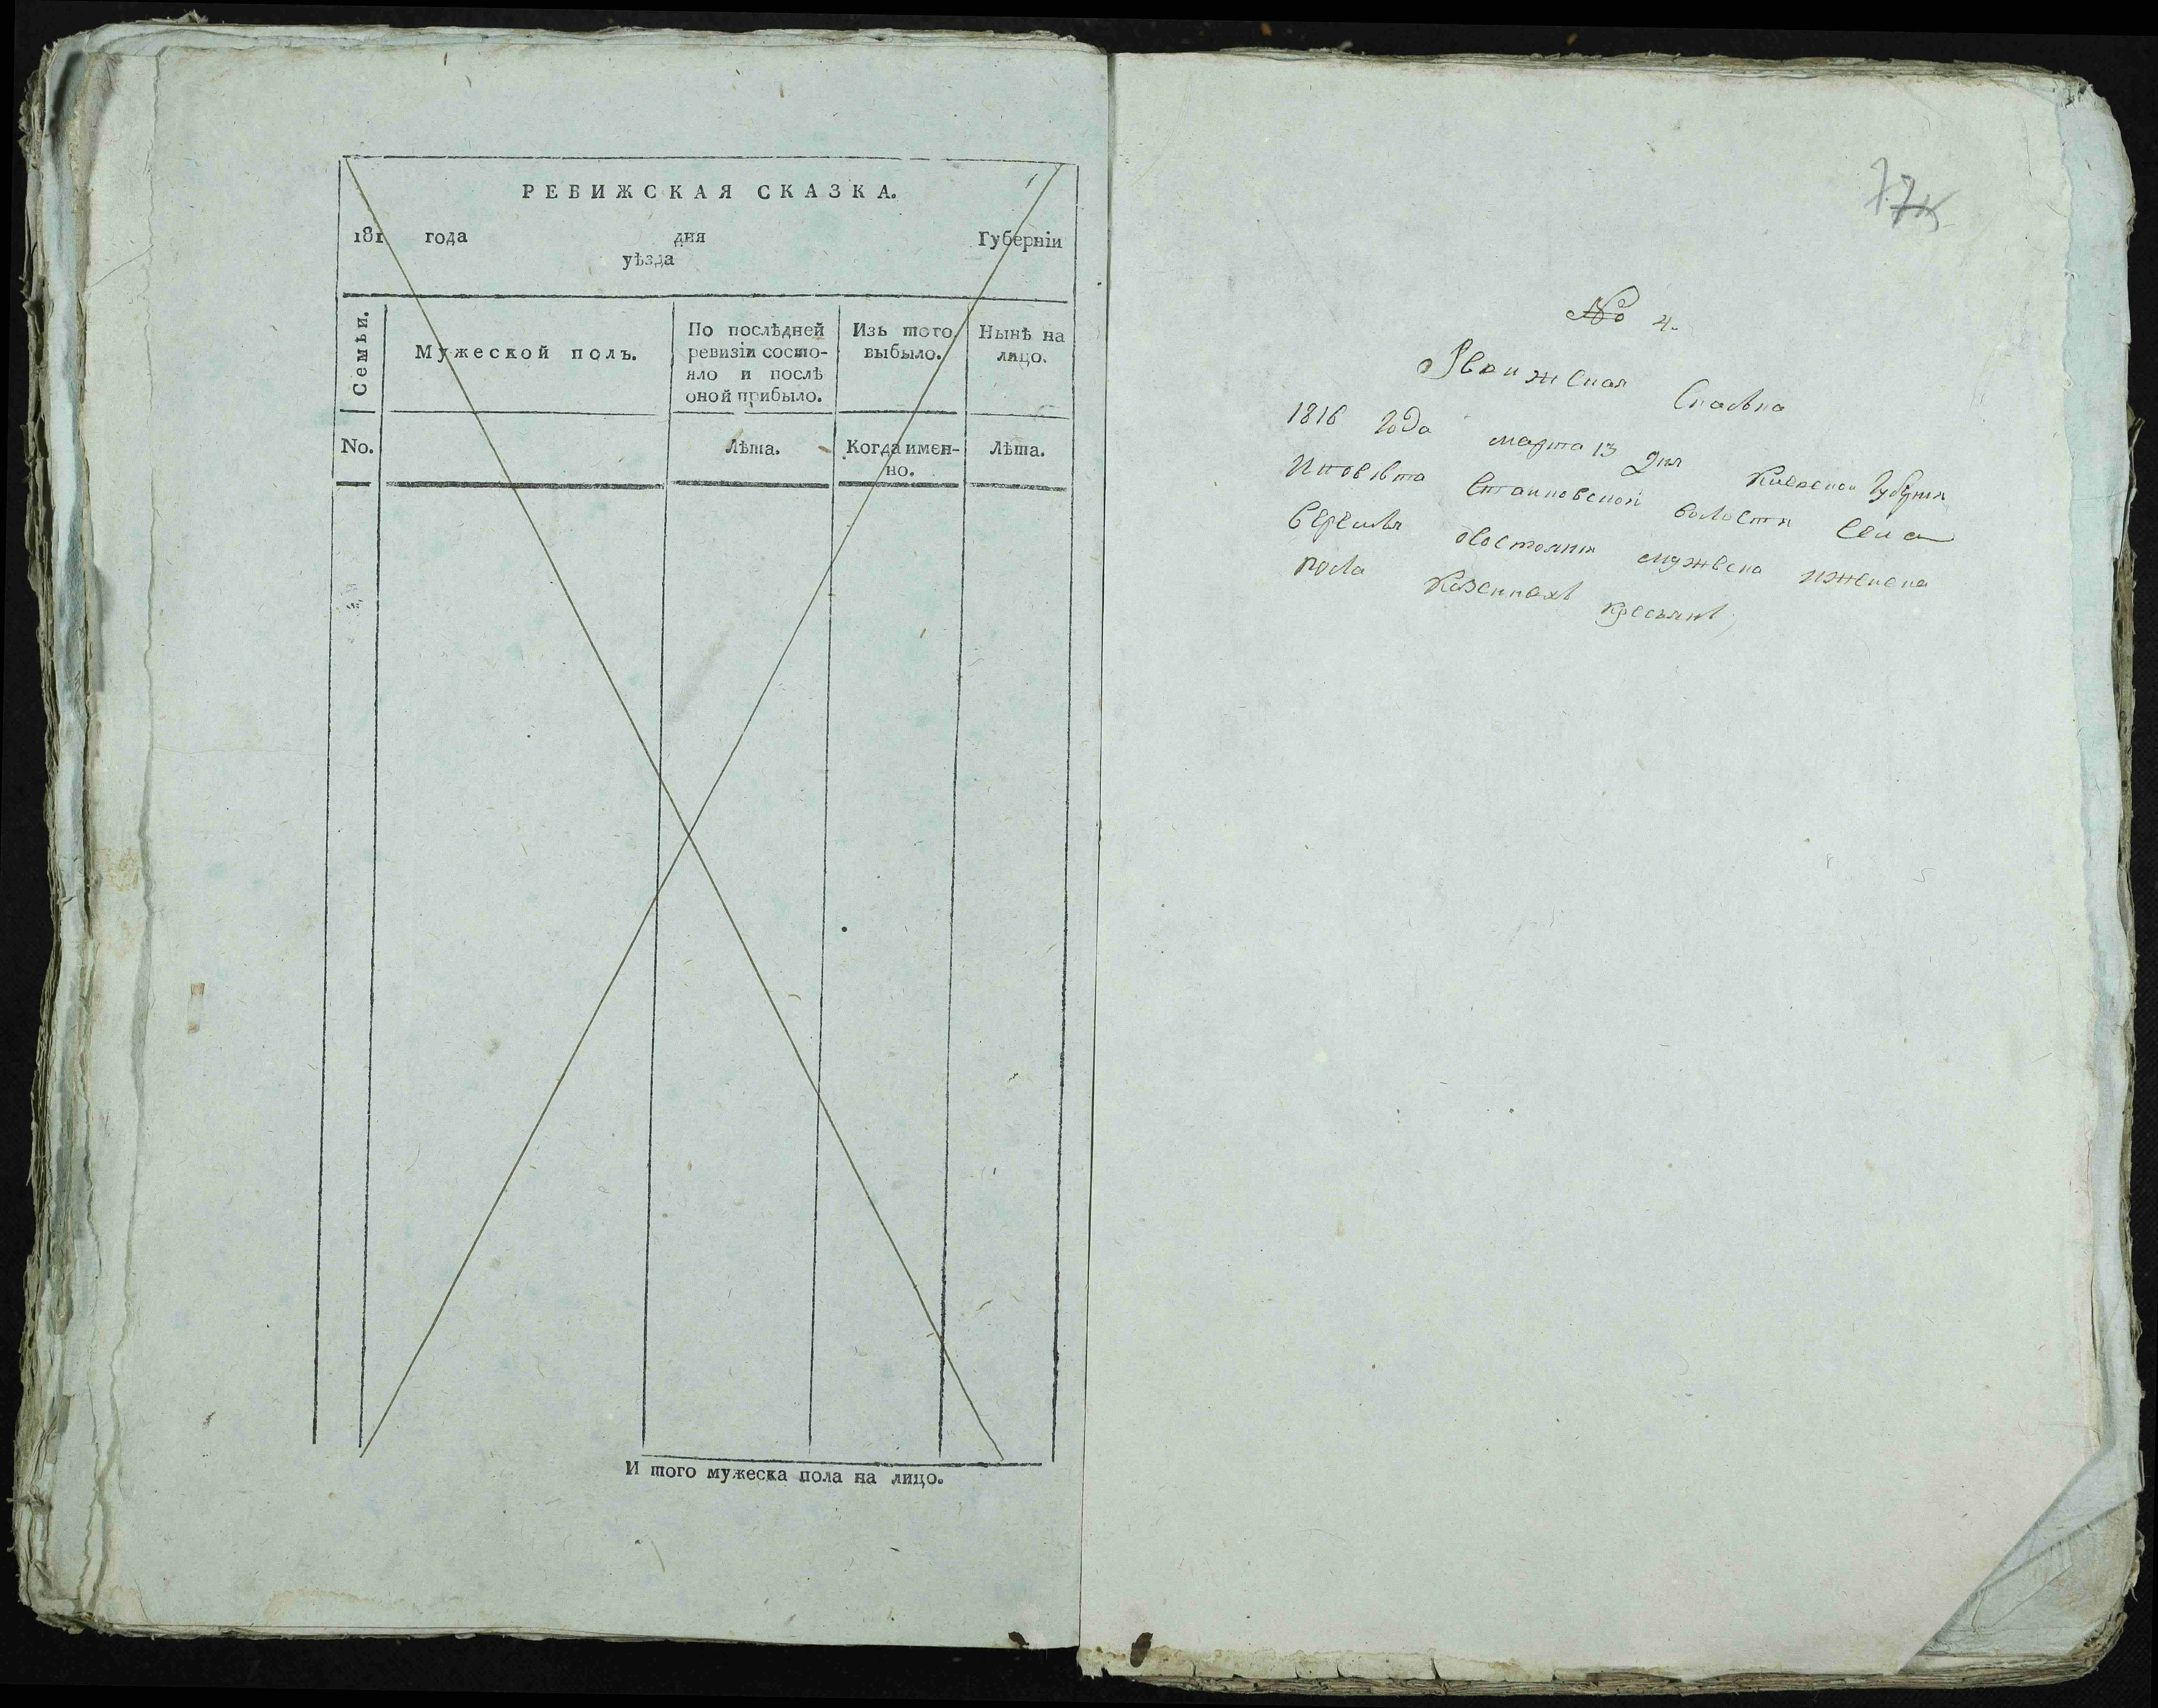 РЕВИЖСКАЯ СКАЗКА.
181 года дня Губерніи
уѣзда
Семьи.
Мужеской полъ.
По послѣдней ревизіи состо-
яло и послѣ оной прибыло.
Изъ того выбыло.
Нынѣ на лицо.
No.
Лѣта.
Когда имен-
но.
Лѣта.
И того мужеска пола на лицо.
77
No 4.
Ревижская Сказка
1816 года марта 13 дня Киевской Губерни
волости села
состояни мужеска иженска
пола Казенныхъ кресьянъ